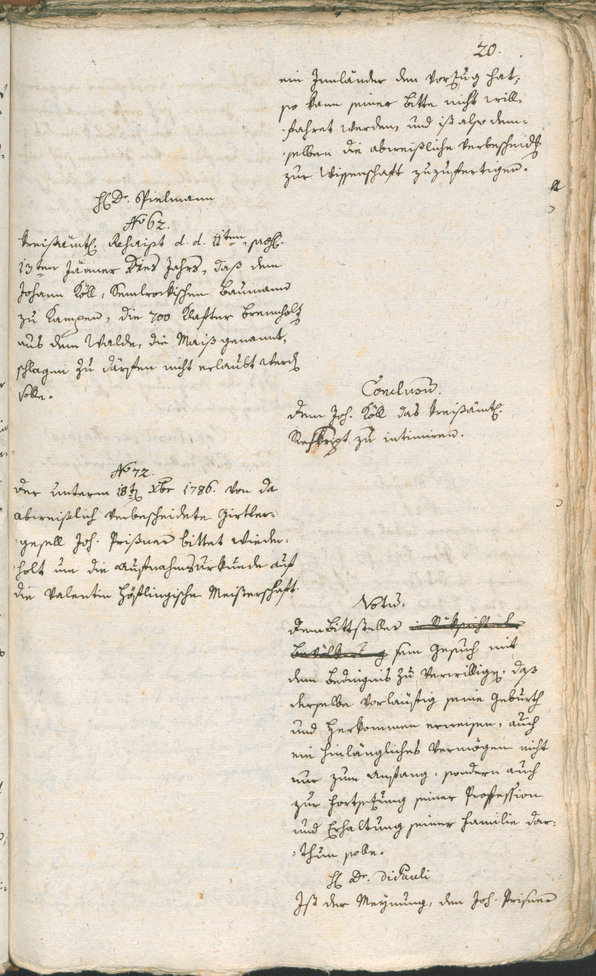 20.
ein Innländer den Vorzug hat,
so kann seiner Bitte nicht will-
fahret werden, und ist also dem-
selben die abweißliche Verbescheidg
zur Wissenschaft zuzufertigen.
H Dr. Spielmann
No 62.
Kreißämtl. Rescript d. d. 11ten
13ten Jänner dies Jahrs, daß dem
Johann Köll, Baumann
zu Kampen, die 700 Klafter Brennholz
aus dem Walde, die Maiß genannt,
schlagen zu därfen nicht erlaubt werd
solle.
Conclusum.
Dem Joh. Köll das kreißämtl.
Reskript zu intimiren.
No 72.
Der unterm 18t Xbr 1786. von da
abweißlich verbescheidete Girtler-
gesell Joh. Prisner bittet wieder-
holt um die Aufnahmsurkunde auf
die Valentin Höslingische Meisterschaft
Votum.
Dem Bittsteller
sein Gesuch mit
dem Bedingnis zu verwillige, daß
derselbe vorläufig seine Geburth
und Herkommen erweisen, auch
ein hinlängliches Vermögen nicht
nur zum Anfang, sondern auch
zur Fortsetzung seiner Profession
und Erhaltung seiner Familie dar-
thun solle.
H Dr. diPauli
Ist der Meynung, dem Joh. Prisner